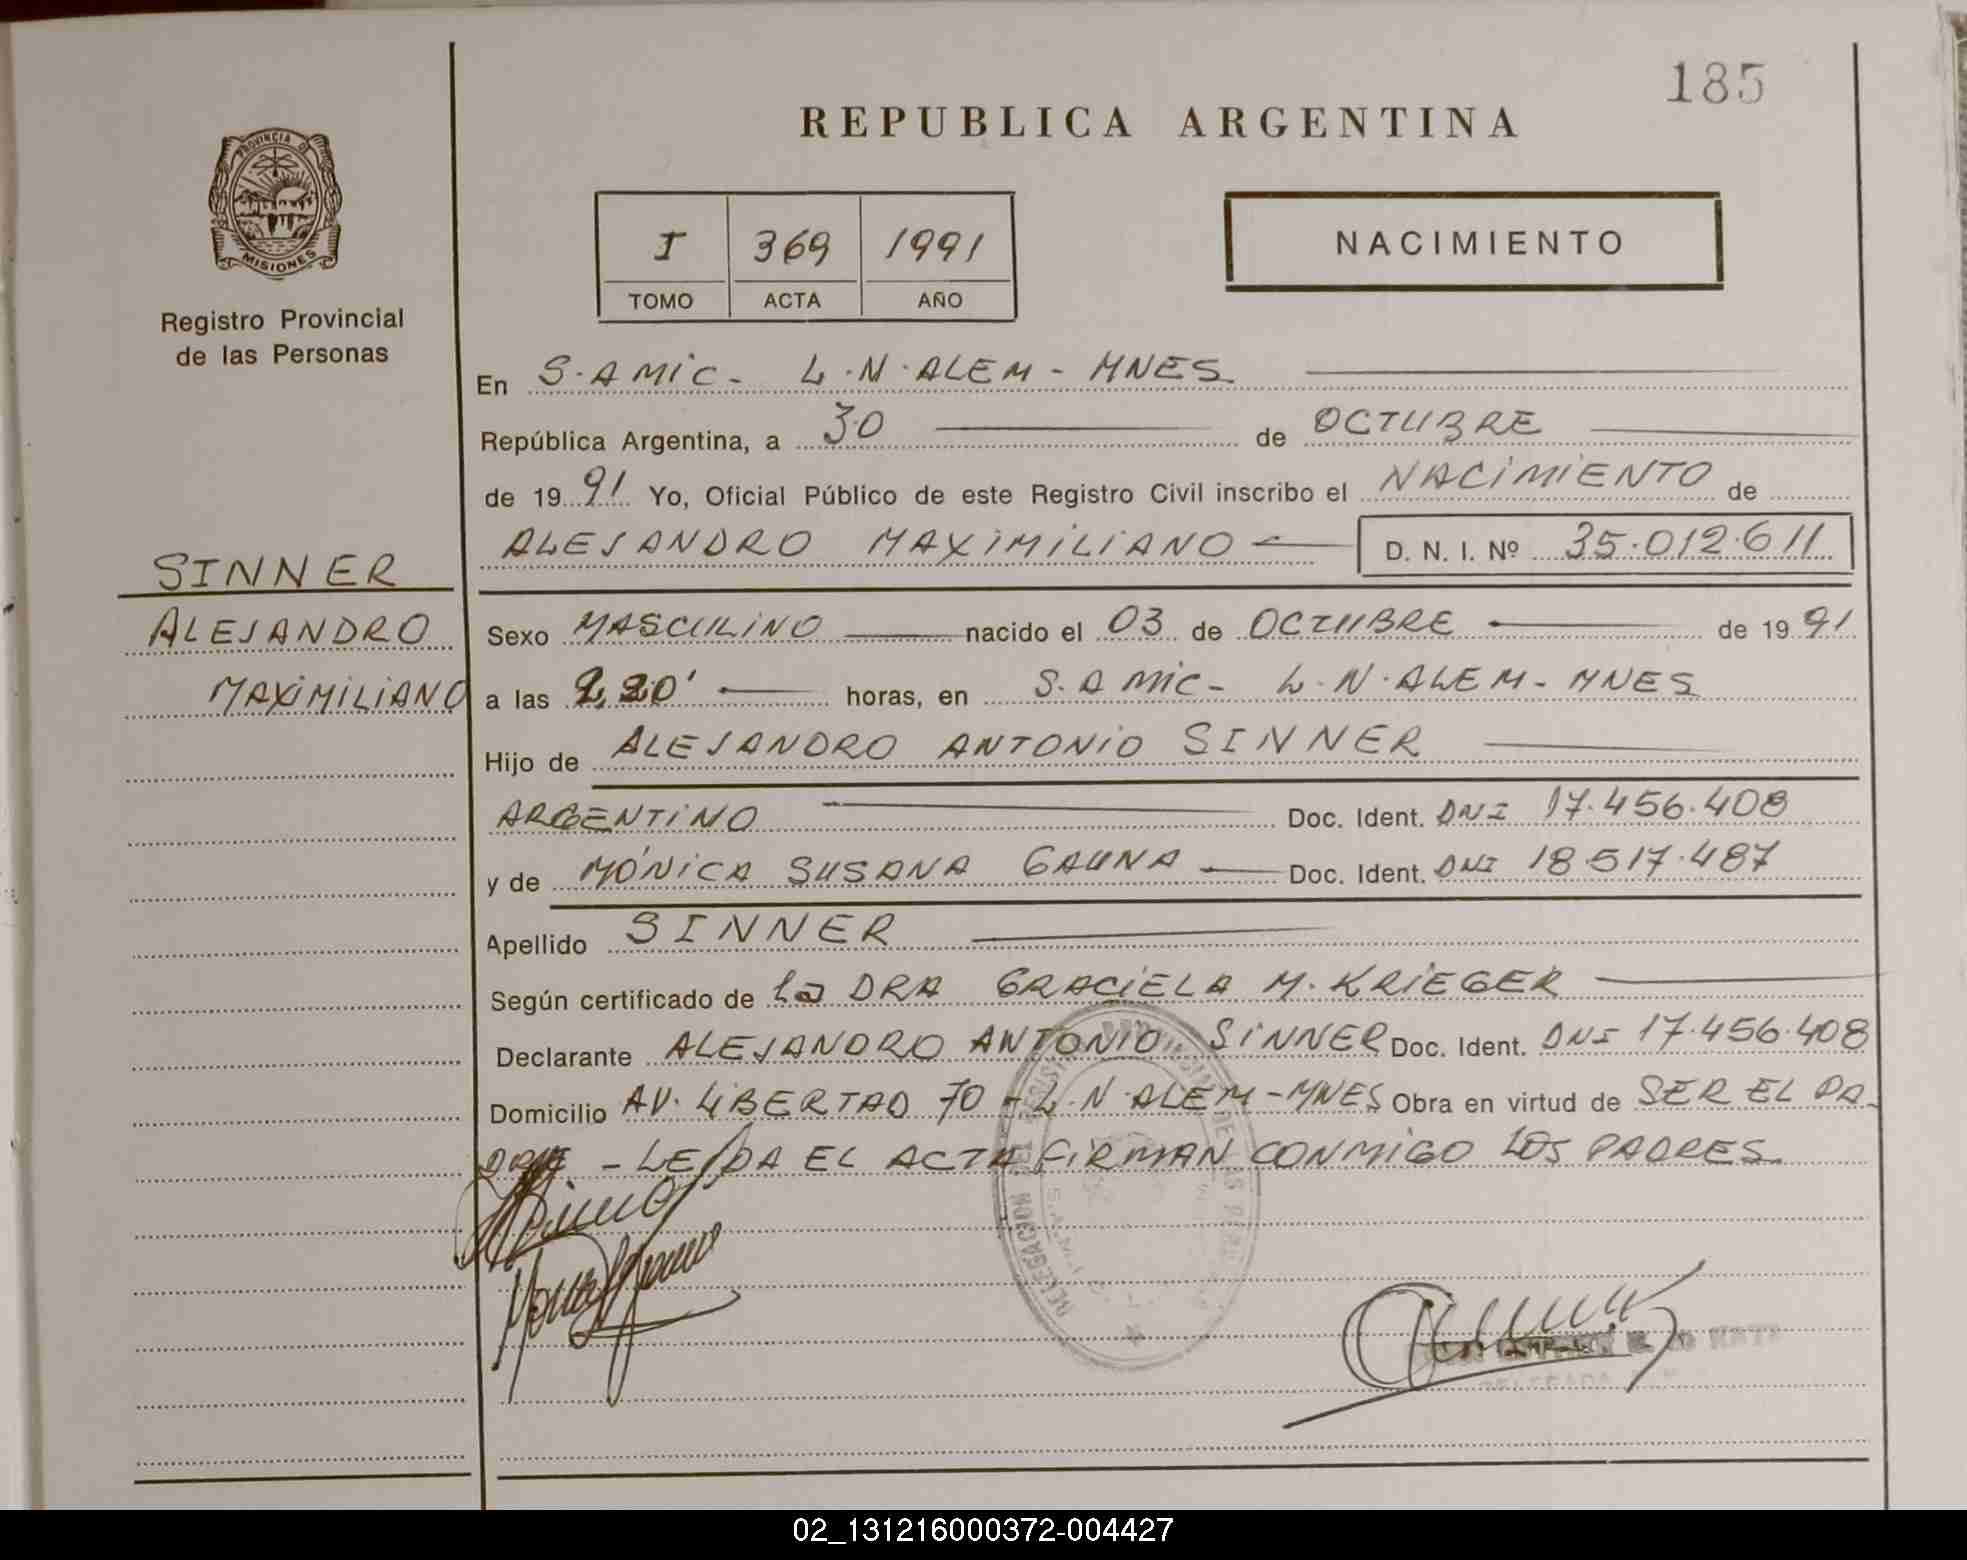 185
REPUBLICA ARGENTINA
PROVINCIA DE
MISIONES
Registro Provincial
de las Personas
I 369 1991
TOMO ACTA AÑO
NACIMIENTO
En S.AMIC- L.N.ALEM-MNES
República Argentina, a 30 de OCTUBRE
de 1991 Yo, Oficial Público de este Registro Civil inscribo el NACIMIENTO de
ALEJANDRO MAXIMILIANO D. N. I. Nº 35.012.611
SINNER
ALEJANDRO
MAXIMILIANO
Sexo MASCULINO nacido el 03 de OCTUBRE de 1991
a las horas, en S.AMIC- L.N.ALEM-MNES
Hijo de ALEJANDRO ANTONIO SINNER
ARGENTINO Doc. Ident. DNI 17.456.408
y de MÓNICA SUSANA GAUNA Doc. Ident. DNI 18.517.487
Apellido SINNER
Según certificado de la DRA GRACIELA M. KRIEGER
Declarante ALEJANDRO ANTONIO SINNER Doc. Ident. DNI 17.456.408
Domicilio AV. LIBERTAD 70 - L.N.ALEM-MNES Obra en virtud de SER EL PA-
DRE - LEIDA EL ACTA FIRMAN CONMIGO LOS PADRES.
DELEGACION
02_131216000372-004427